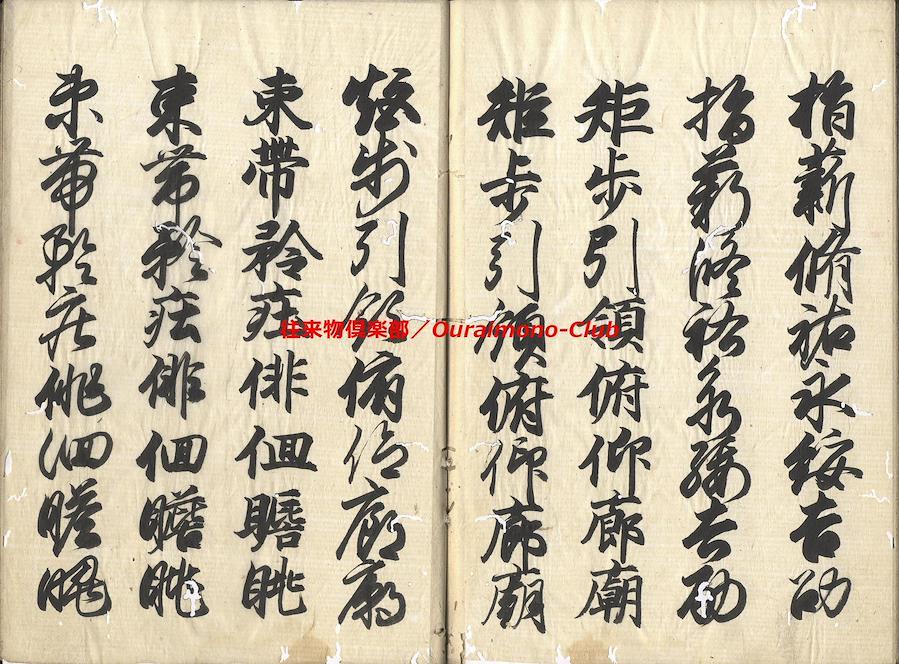 指薪脩祐永綏吉劭
指薪脩祐永綏吉劭
矩歩引領俯仰廊廟
矩歩引領俯仰廊廟
矩歩引領俯仰廊廟
束帶矜莊俳佪瞻眺
束帶矜莊俳佪瞻眺
束帶矜莊俳佪瞻眺
往来物倶楽部／Ouraimono-Club